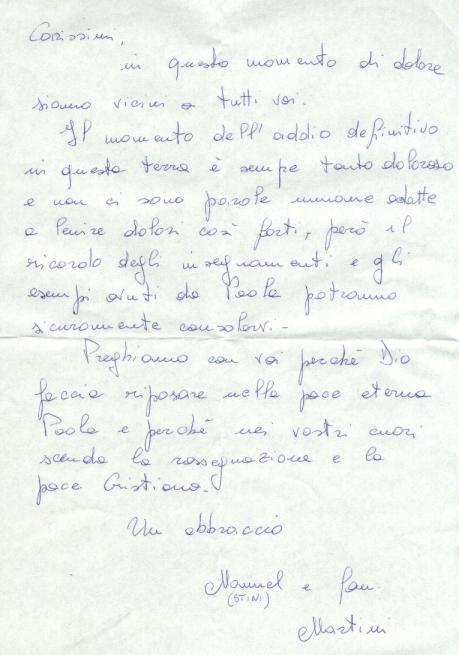 Carissimi,
in questo momento di dolore
siamo vicini a tutti voi.
Il momento dell'addio definitivo
in questa terra è sempe tanto doloroso
e non ci sono parole umane adatte
a lenire dolori così forti, però il
ricordo degli insegnamenti e gli
esempi avuti da Paola potranno
sicuramente consolarvi -
Preghiamo con voi perché Dio
faccia riposare nella pace eterna
Paola e perché nei vostri cuori
scenda la rassegnazione e la
pace Cristiana.
Un abbraccio
Manuel e fam.
(STINI)
Martini